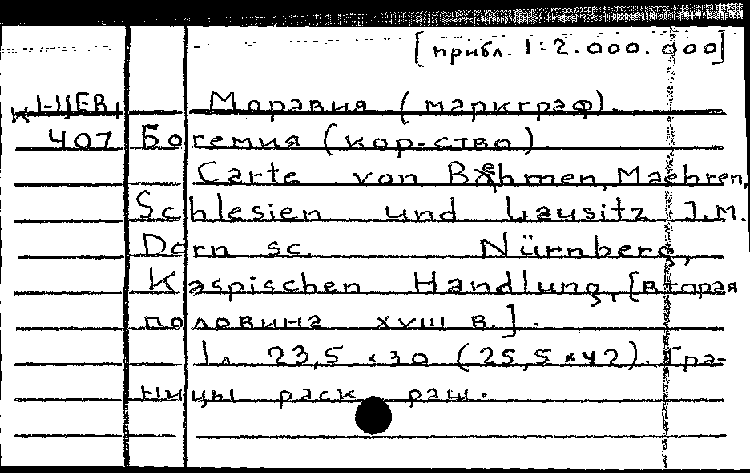 [прибл. 1:2.000.000]
К 1-ЦЕВ1 Моравия (маркграф).
407 Богемия (кор-ство)
Carte von Böhmen, Maehren,
Schlesien und Lausitz J.M.
Dorn sc. Nürnberg,
Kaspischen Handlung, [вторая
половина XVIII в.].
1 л. 23,5 × 30 (25,5 × 42). Гра-
ницы раск раш.